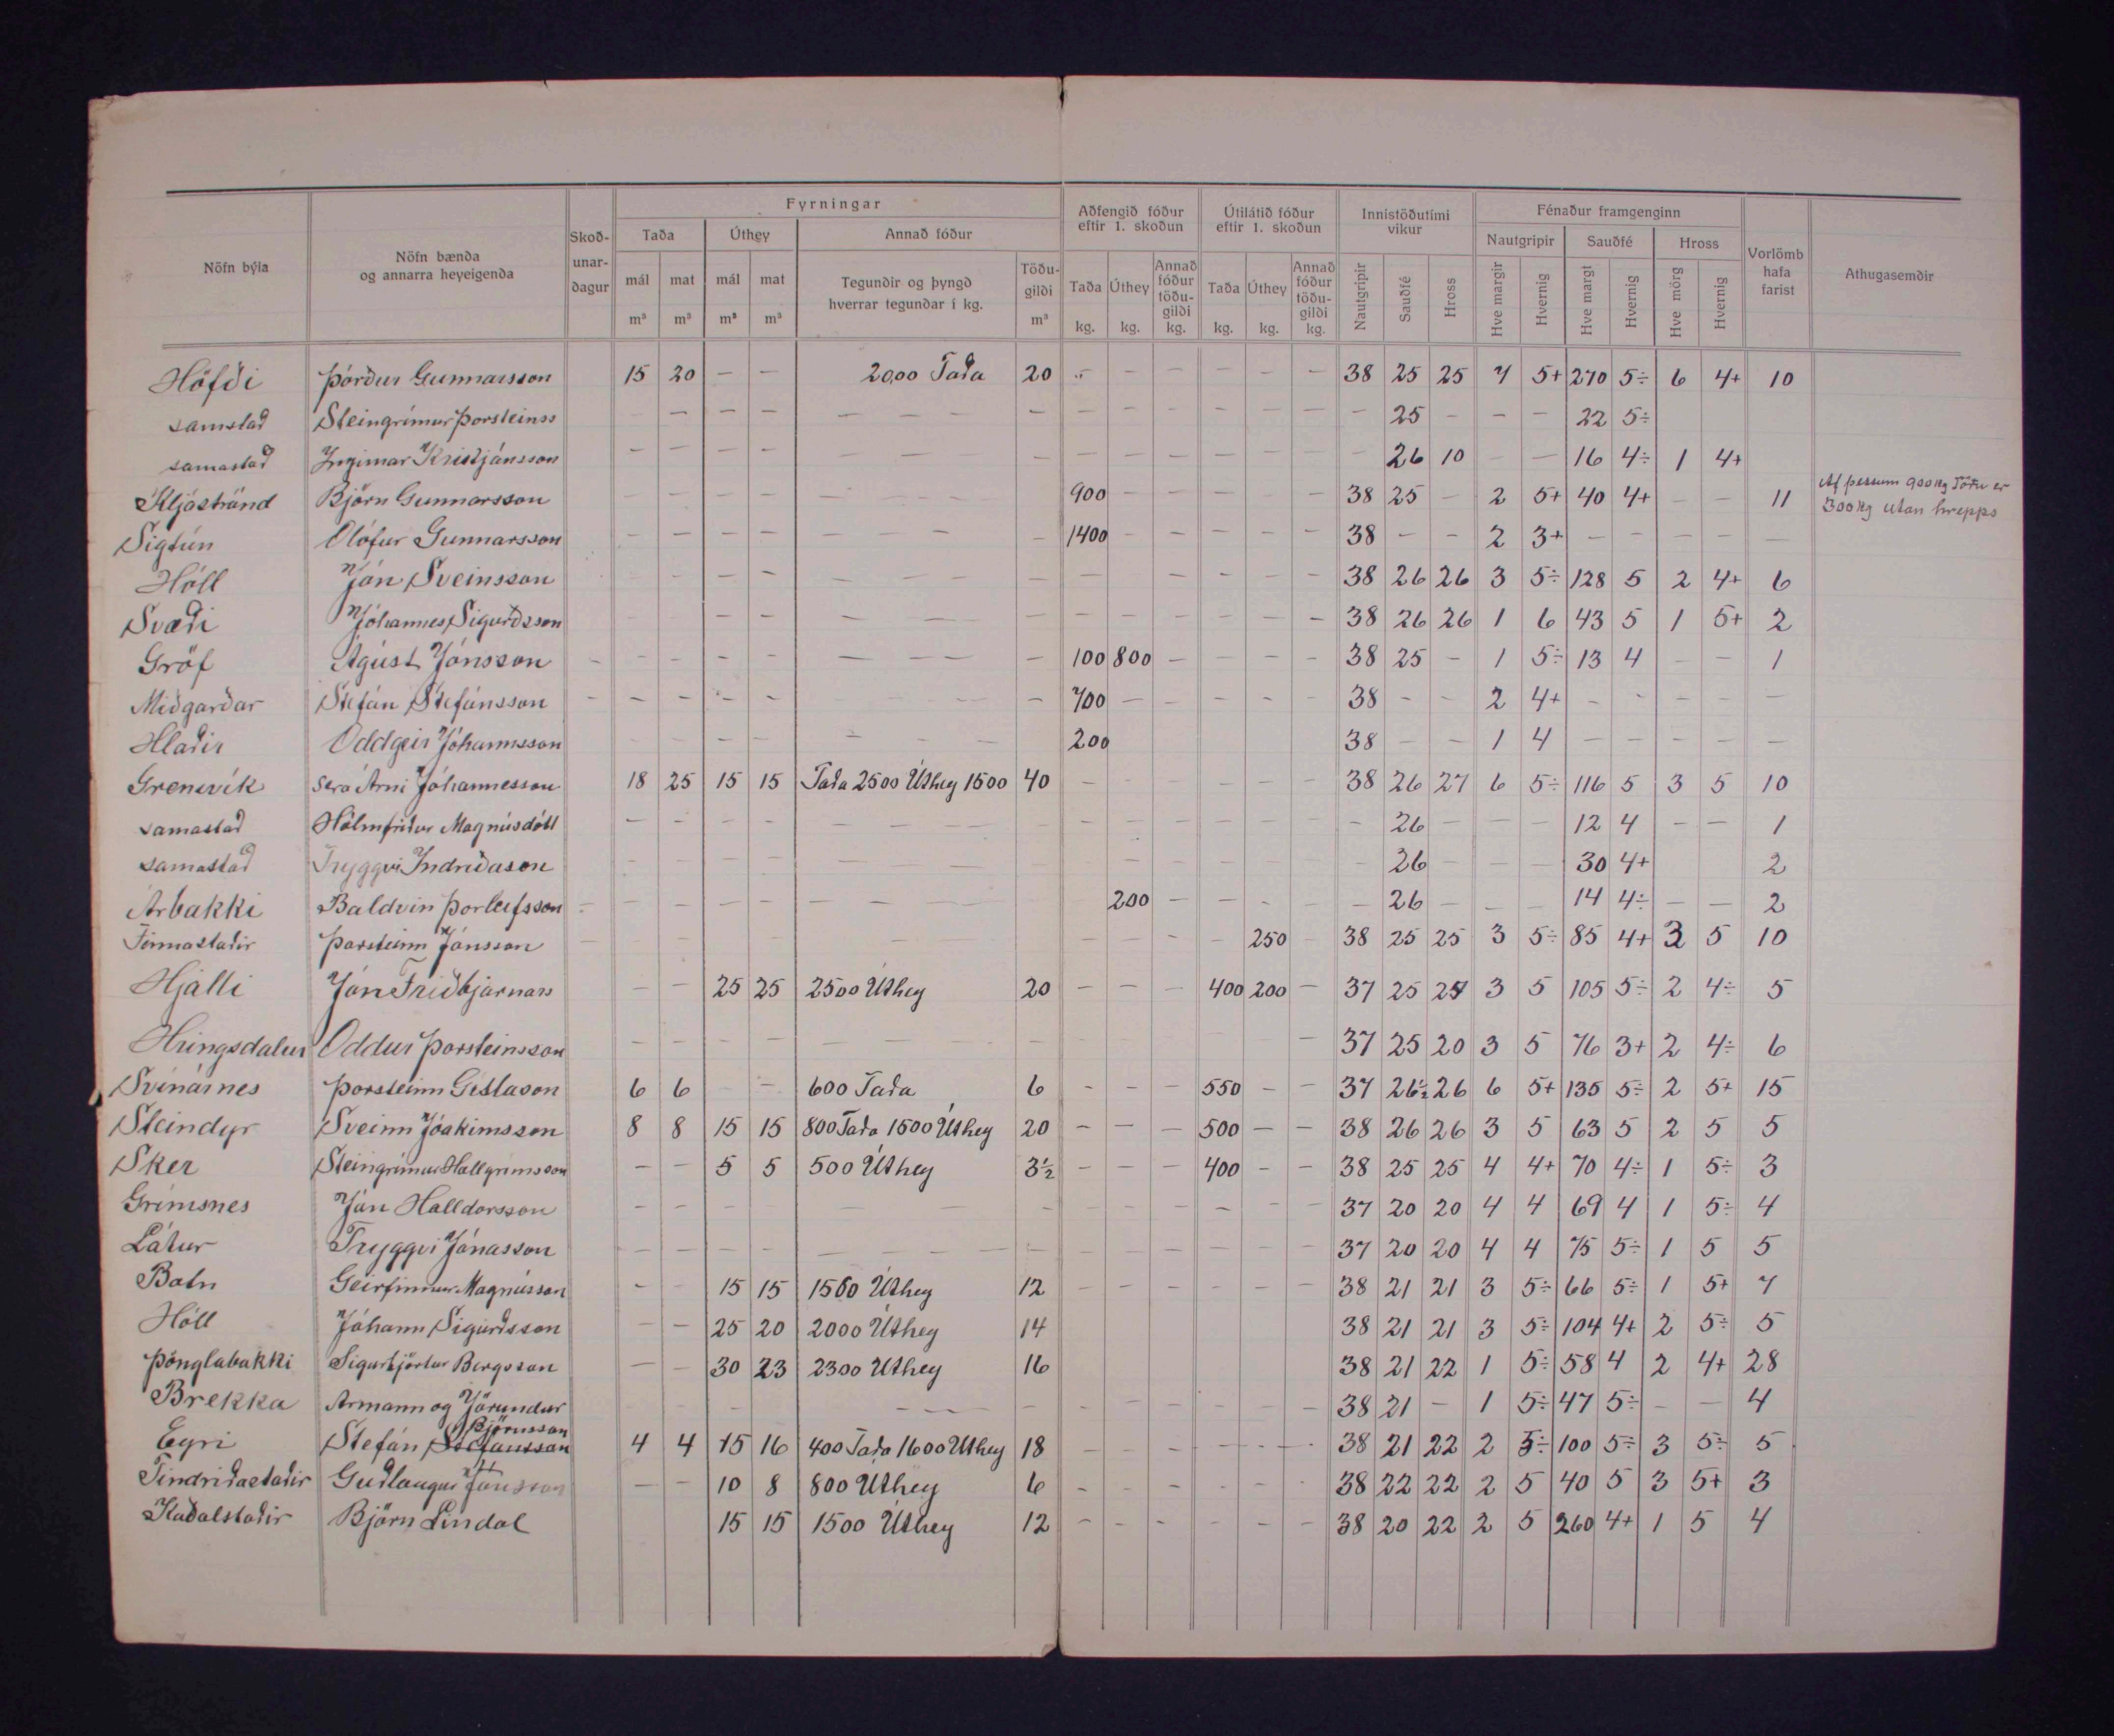 Fyrningar
Aðfengið fóður eftir 1. skoðun
Útilátið fóður eftir 1. skoðun
Innistöðutími vikur
Fénaður framgenginn
Nöfn býla
Nöfn bænda og annarra heyeigenda
Skoð-unar-dagur
Taða
Úthey
Annað fóður
Nautgripir Sauðfé Hross
Vorlömb hafa farist
Athugasemdir
mál m³ mat m³ mál m³ mat m³
Tegundir og þyngd hverrar tegundar í kg.
Töðu-gildi m³
Taða kg. Úthey kg. Annað fóður töðu-gildi kg.
Taða kg. Úthey kg. Annað fóður töðu-gildi kg.
Nautgripir Sauðfé Hross
Hve margir Hvernig Hve margt Hvernig Hve mörg Hvernig
Höfði Þórður Gunnarsson 15 20 – – 2000 Taða 20 – – – – – – 38 25 25 7 5+ 270 5÷ 6 4+ 10
samstað Steingrímur Þorsteinss – – – – – – – – – – – – – – 25 – – – 22 5÷
samastað Ingimar Kristjánsson – – – – – – – – – – – – – – 26 10 – – 16 4÷ 1 4+
Kljáströnd Björn Gunnarsson – – – – – – – 900 – – – – – 38 25 – 2 5+ 40 4+ – – 11 Af þessum 900 kg Töðu er
300 kg utan hrepps
Sigtún Ólöfur Gunnarsson – – – – – – – – 1400 – – – – – 38 – – 2 3+ – – – – –
Hóll Jón Sveinsson – – – – – – – – – – – – – 38 26 26 3 5÷ 128 5 2 4+ 6
Svæði Jóhannes Sigurðsson – – – – – – – – – – – – – 38 26 26 1 6 43 5 1 5+ 2
Gröf Ágúst Jónsson – – – – – – – – – 100 800 – – – – 38 25 – 1 5÷ 13 4 – – 1
Miðgarðar Stefán Stefánsson – – – – – – – – 700 – – – – – 38 – – 2 4+ – – – – –
Hlaðir Oddgeir Jóhannsson – – – – – – – 200 38 – – 1 4 – – – – –
Grenivík séra Árni Jóhannesson 18 25 15 15 Taða 2500 Úthey 1500 40 – – – – – – 38 26 27 6 5÷ 116 5 3 5 10
samastað Hólmfríður Magnúsdótt – – – – – – – – – – – – – – 26 – – – 12 4 – – 1
samastað Tryggvi Indriðason – – – – – – – – – – – – – 26 – – – 30 4+ 2
Árbakki Baldvin Þorleifsson – – – – – – – – 200 – – – – – 26 – – – 14 4÷ – – 2
Finnastaðir Þorsteinn Jónsson – – – – – – – – – – – 250 – 38 25 25 3 5÷ 85 4+ 3 5 10
Hjalli Jón Friðbjarnars – – 25 25 2500 Úthey 20 – – – 400 200 – 37 25 24 3 5 105 5÷ 2 4÷ 5
Hringsdalur Oddur Þorsteinsson – – – – – – – – – – – – – 37 25 20 3 5 76 3+ 2 4÷ 6
Svínárnes Þorsteinn Gíslason 6 6 – – 600 Taða 6 – – – 550 – – 37 26½ 26 6 5+ 135 5÷ 2 5+ 15
Steindyr Sveinn Jóakimsson 8 8 15 15 800 Taða 1500 Úthey 20 – – – 500 – – 38 26 26 3 5 63 5 2 5 5
Sker Steingrímur Hallgrímsson – – 5 5 500 Úthey 3½ – – – 400 – – 38 25 25 4 4+ 70 4÷ 1 5÷ 3
Grímsnes Jón Halldorsson – – – – – – – – – – – – – 37 20 20 4 4 69 4 1 5÷ 4
Látur Tryggvi Jónasson – – – – – – – – – – – – – – 37 20 20 4 4 75 5÷ 1 5 5
Botn Geirfinnur Magnússon – – 15 15 1500 Úthey 12 – – – – – – 38 21 21 3 5÷ 66 5÷ 1 5+ 7
Hóll Jóhann Sigurðsson – – 25 20 2000 Úthey 14 38 21 21 3 5÷ 104 4+ 2 5÷ 5
Þönglabakki Sigurhjörtur Bergsson – – 30 23 2300 Úthey 16 38 21 22 1 5÷ 58 4 2 4+ 28
Brekka Ármann og Jörundur – – – – – – – – – – – – – 38 21 – 1 5÷ 47 5÷ – – 4
Björnsson
Eyri Stefán Stefansson 4 4 15 16 400 Taða 1600 Úthey 18 – – – – – – 38 21 22 2 5÷ 100 5÷ 3 5÷ 5
Tindriðastaðir Guðlaugur Jónsson – – 10 8 800 Úthey 6 – – – – – – 38 22 22 2 5 40 5 3 5+ 3
Kaðalstaðir Björn Líndal 15 15 1500 Úthey 12 – – – – – – 38 20 22 2 5 260 4+ 1 5 4